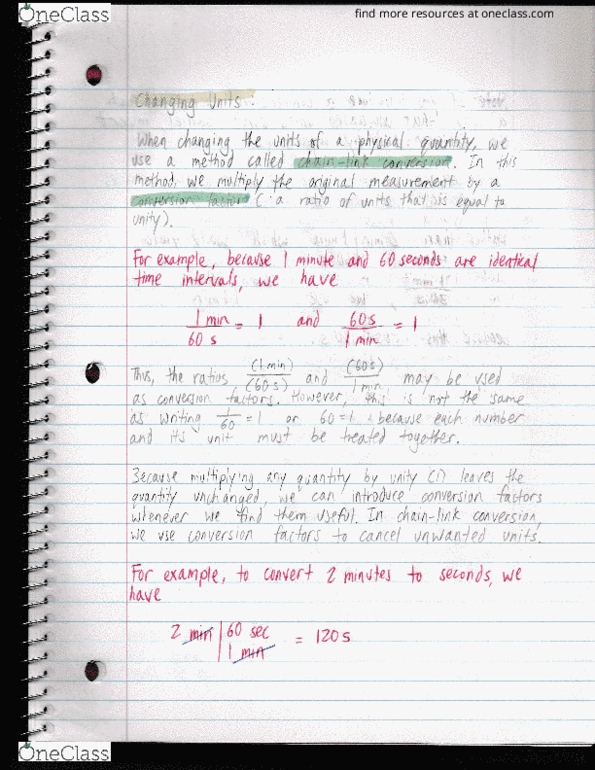 OneClass
find more resources at oneclass.com
Changing Units:
When changing the units of a physical quantity, we
use a method called chain-link conversion. In this
method, we multiply the original measurement by a
conversion factor (a ratio of units that is equal to
unity).
For example, because 1 minute and 60 seconds are identical
time intervals, we have
1 min / 60 s = 1 and 60 s / 1 min = 1
Thus, the ratios, (1 min) / (60 s) and (60 s) / 1 min may be used
as conversion factors. However, this is not the same
as writing 1/60 = 1 or 60 = 1, because each number
and its unit must be treated together.
Because multiplying any quantity by unity (1) leaves the
quantity unchanged, we can introduce conversion factors
whenever we find them useful. In chain-link conversion,
we use conversion factors to cancel unwanted units.
For example, to convert 2 minutes to seconds, we
have
2 min | 60 sec / 1 min = 120 s
OneClass